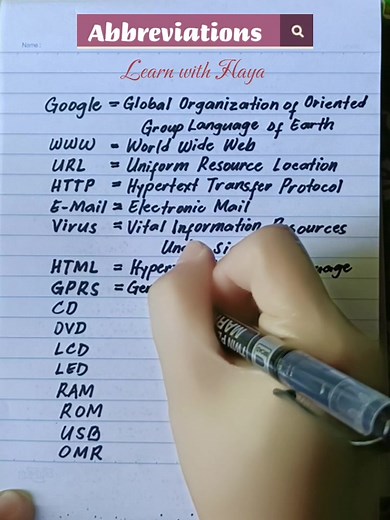 Abbreviations
Learn with Haya
Name:
Google = Global Organization of Oriented
Group Language of Earth
WWW = World Wide Web
URL = Uniform Resource Location
HTTP = Hypertext Transfer Protocol
E-Mail = Electronic Mail
Virus = Vital Information Resources
Si
HTML =
GPRS =
CD
DVD
LCD
LED
RAM
ROM
USB
OMR